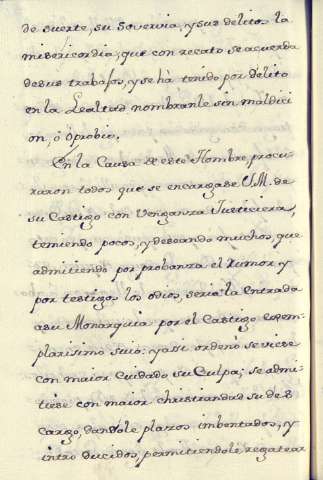 de suerte, su Sovervia, y sus delitos la
misericordia; que con recato se acuerda
de sus trabajos, y se hà tenido por delito
en la Lealtad nombrarle sin maldici-
on, ò òprobio.
En la Causa de este Hombre, procu-
raron todos que se encargase V.M. de
su Castigo con Venganza Justiciera,
temiendo pocos, y deseando muchos, que
admitiendo por probanza el Rumor y
por testigos los odios, seria la Entrada
a su Monarquia por el Castigo exem-
plarisimo suio: y assi ordenó se viese
con maior Cuidado su Culpa; se admi-
tiese con maior christiandad su des-
cargo, dandole plazos imbentados, y
introducidos, permitiendole regatear